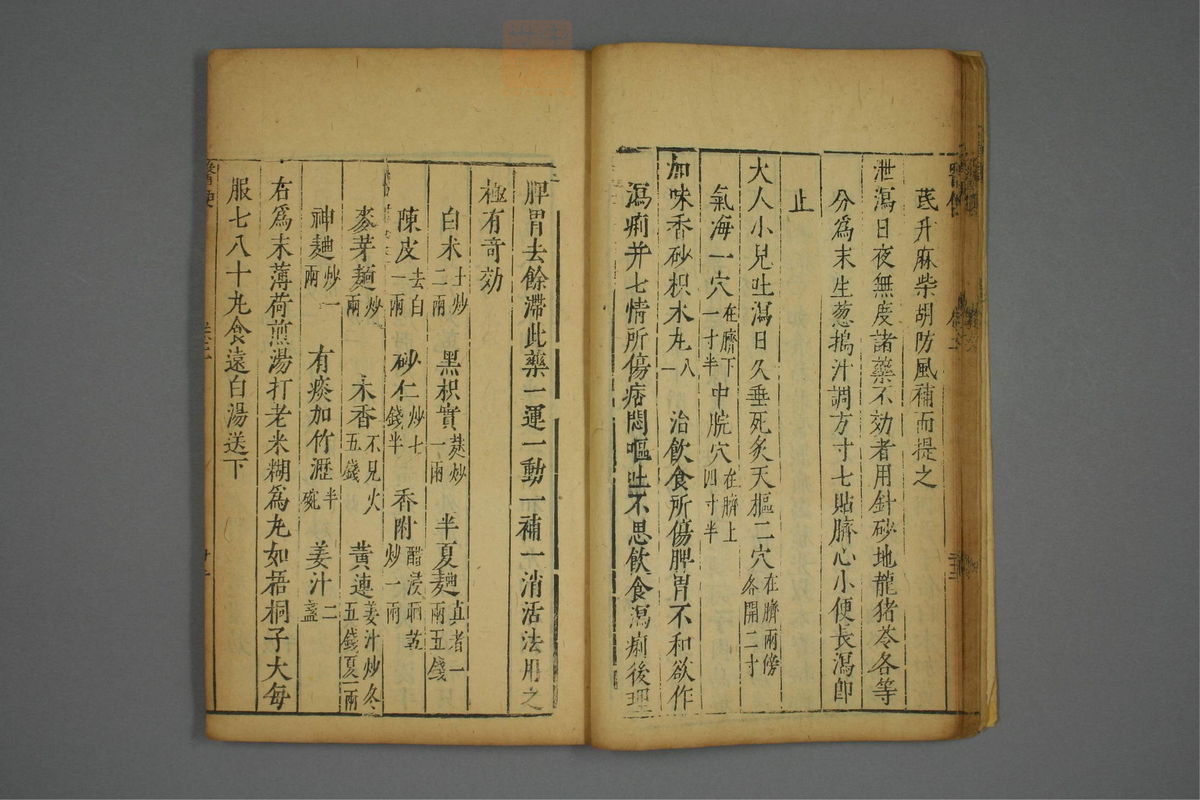 芪升麻柴胡防風補而提之
泄瀉日夜無度諸藥不効者用針砂地龍猪苓各等
分爲末生葱搗汁調方寸七貼臍心小便長瀉卽
止
大人小兒吐瀉日久垂死炙天樞二穴在臍兩傍各開二寸
氣海一穴在臍下一寸半中脘穴在臍上四寸半
加味香砂枳术丸八一治飲食所傷脾胃不和欲作
瀉痢并七情所傷痞悶嘔吐不思飲食瀉痢後理
脾胃去餘滯此藥一運一動一補一消活法用之
極有奇効
白术土炒二兩黑枳實麸炒一兩半夏麯真者一兩五錢
陳皮去白一兩砂仁炒七錢半香附醋浸晒乾炒一兩
麥芽麵炒兩木香不見火五錢黃連姜汁炒冬五錢夏一兩
神麯炒一兩有痰加竹瀝半碗姜汁二盞
右爲末薄荷煎湯打老米糊爲丸如梧桐子大每
服七八十丸食遠白湯送下